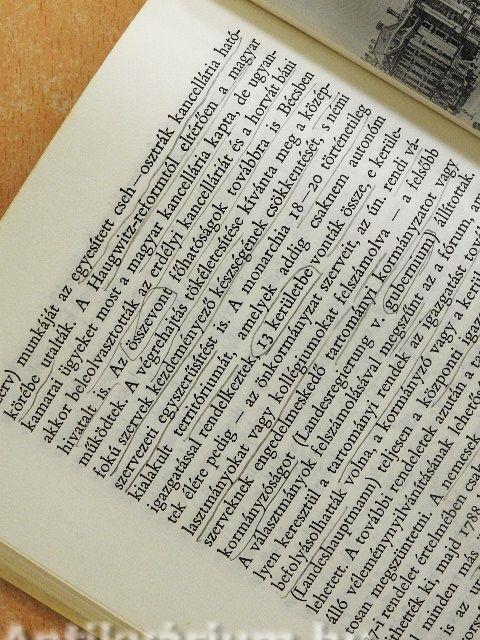 munkáját az egyesített cseh–osztrák kancellária ható-
körébe utalták. A Haugwitz-reformtól eltérően a magyar
kamarai ügyeket most a magyar kancellária kapta, de ugyan-
akkor beleolvasztották az erdélyi kancelláriát és a horvát báni
hivatalt is. Az összevont főhatóságok továbbra is Bécsben
működtek. A végrehajtás tökéletesítése kívánta meg a közép-
fokú szervek kezdeményező készségének csökkentését s némi
szervezeti egyszerűsítést is. A monarchia 18–20 történetileg
kialakult territóriumát, amelyek addig csaknem autonóm
igazgatással rendelkeztek, 13 kerületbe vonták össze, e kerüle-
tek élére pedig — az önkormányzat szerveit, az ún. rendi vá-
lasztmányokat vagy kollégiumokat felszámolva — a felsőbb
szerveknek engedelmeskedő tartományi kormányzatot vagy
kormányzóságot (Landesregierung v. gubernium) állították.
A választmányok felszámolásával megszűnt az a fórum,
lyen keresztül a tartományi rendek az igazgatást
befolyásolhatták volna, a kormányzó vagy a
(Landeshauptmann) teljesen a központi
lehetett. A további rendeletek szűkítették a
álló véleménynyilvánításának
tosan megszüntetni. A nemesek
i rendelet értelmében
hették ki, majd 1788
minden
is az más
Antikvárium.hu